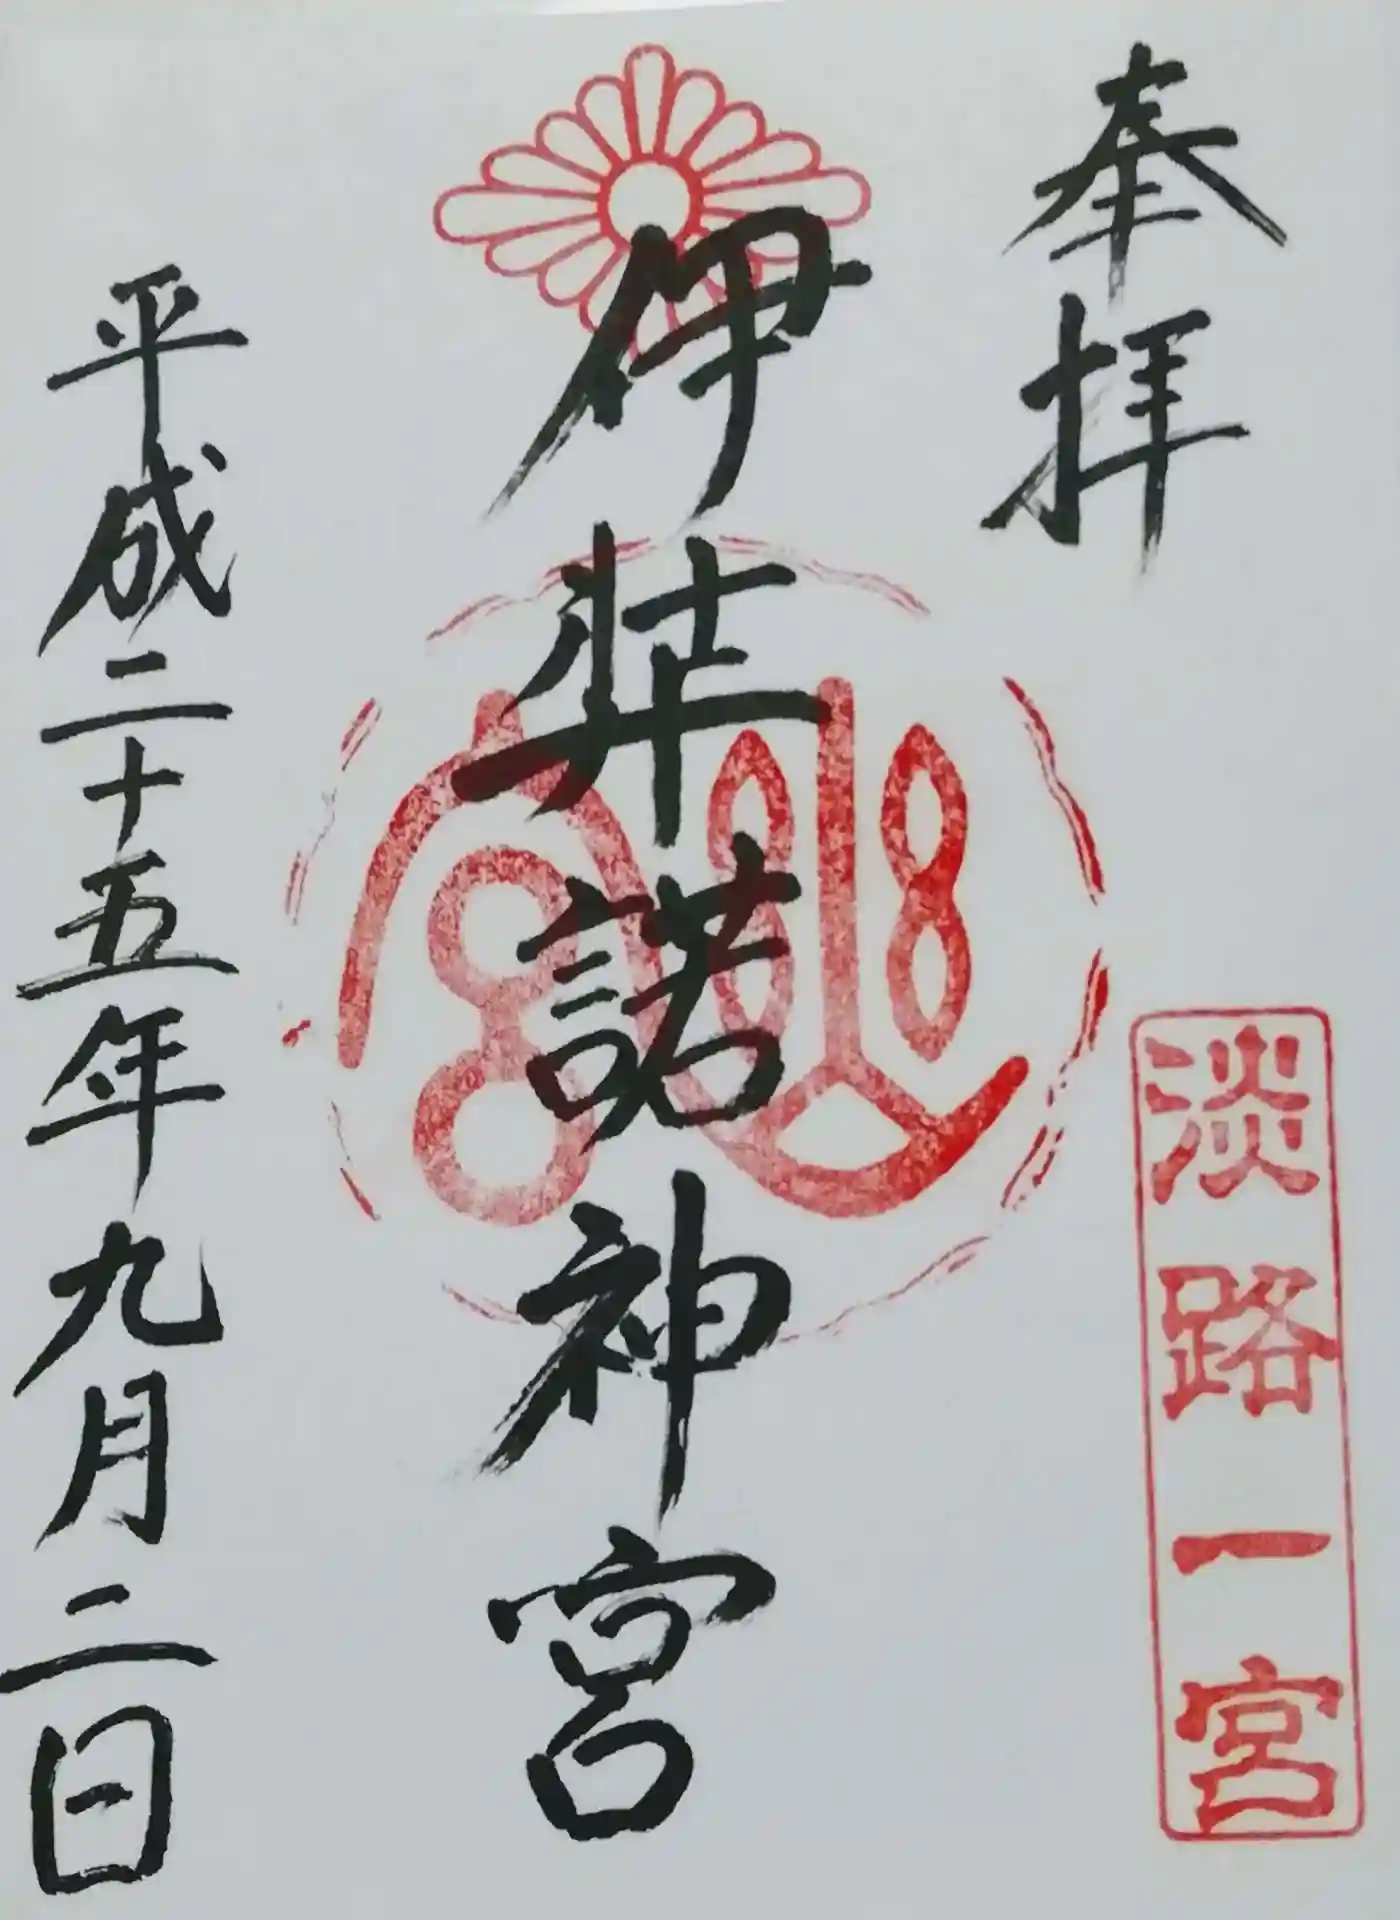 奉拝
淡路一宮
幽宮
伊弉諾神宮
平成二十五年九月二日